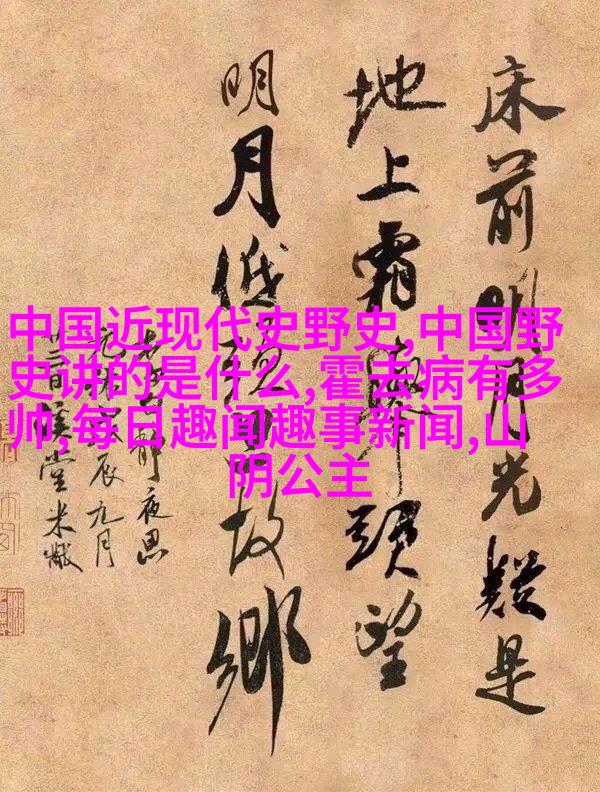 中国近现代史野史,中国野
史讲的是什么,霍去病有多
帅,每日趣闻趣事新闻,山
阴公主
床前明月光疑是
地上霜舉頭望
明月低頭思故鄉
靜夜思
辰九月
堂米黻